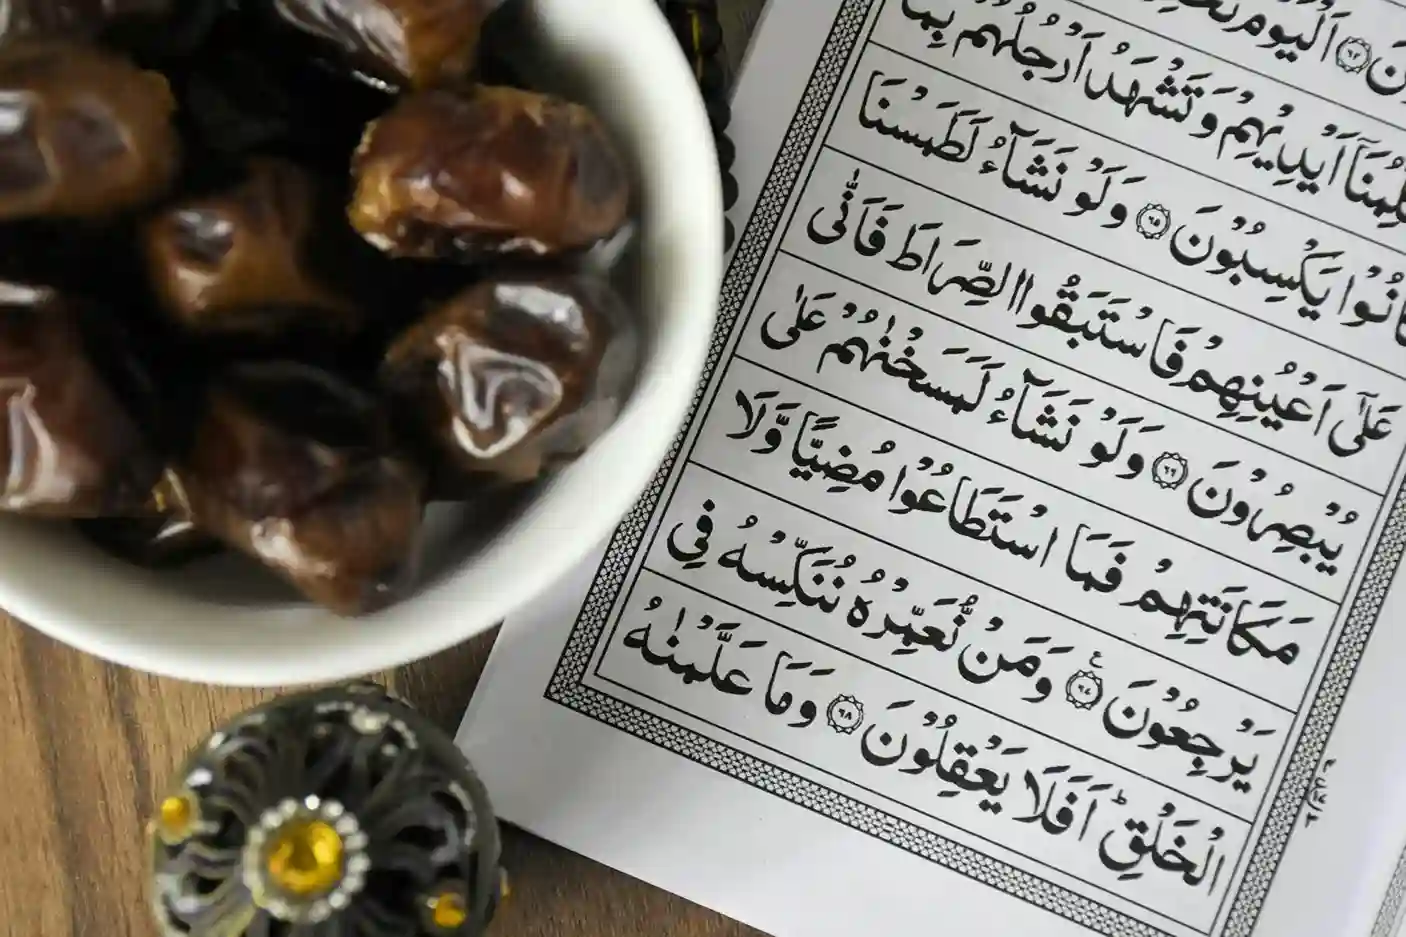 نَ ۝٦٤ اَلْيَوْمَ نَخْتِ
كَلِّمُنَاۤ اَيْدِيْهِمْ وَتَشْهَدُ اَرْجُلُهُمْ بِمَا
كَانُوْا يَكْسِبُوْنَ ۝٦٥ وَلَوْ نَشَآءُ لَطَمَسْنَا
عَلٰۤى اَعْيُنِهِمْ فَاسْتَبَقُوا الصِّرَاطَ فَاَنّٰى
يُبْصِرُوْنَ ۝٦٦ وَلَوْ نَشَآءُ لَمَسَخْنٰهُمْ عَلٰى
مَكَانَتِهِمْ فَمَا اسْتَطَاعُوْا مُضِيًّا وَّلَا
يَرْجِعُوْنَ ۝٦٧ ع وَمَنْ نُّعَمِّرْهُ نُنَكِّسْهُ فِى
الْخَلْقِ ؕ اَفَلَا يَعْقِلُوْنَ ۝٦٨ وَمَا عَلَّمْنٰهُ